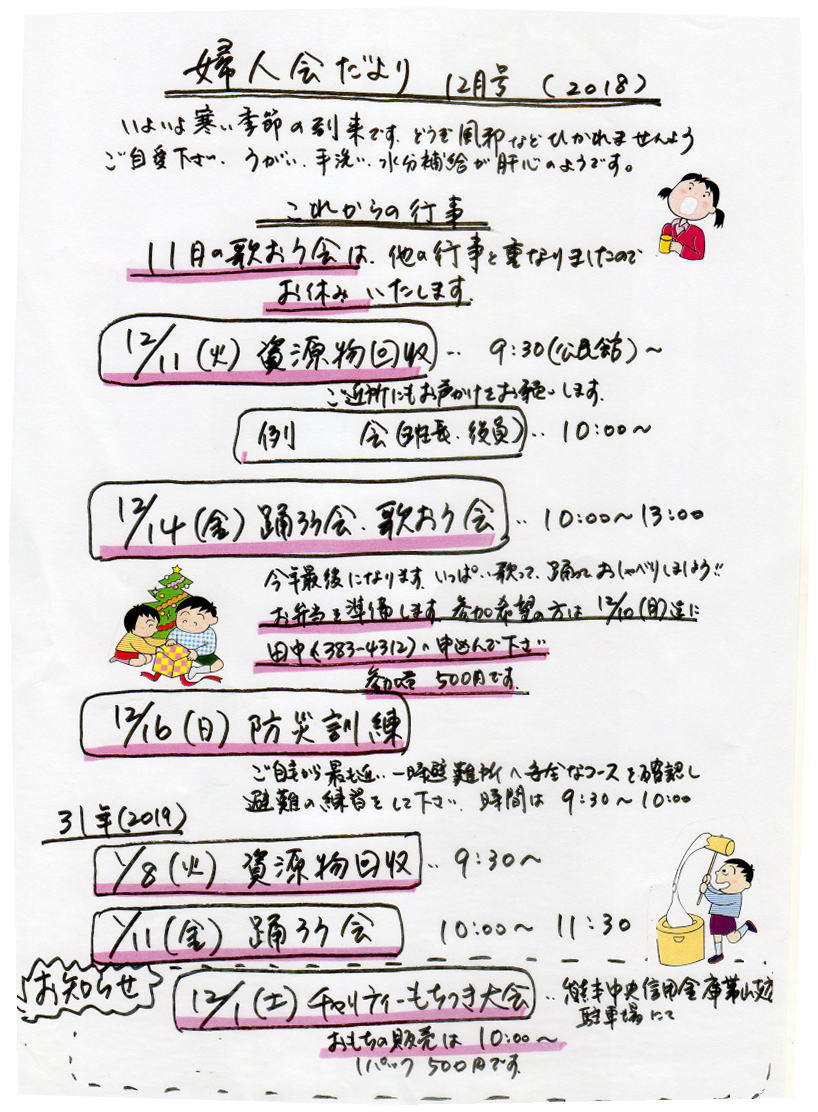 婦人会だより 12月号 (2018)
いよいよ寒い季節の到来です、どうぞ風邪などひかれませんよう
ご自愛下さい、うがい、手洗い、水分補給が肝心のようです。
これからの行事
11月の歌おう会は、他の行事と重なりましたので
お休みいたします
12/11(火) 資源物回収‥ 9:30(公民館)~
ご近所にもお声かけをお願いします。
例 会(班長、役員)‥ 10:00~
12/14(金)踊ろう会、歌おう会‥ 10:00~13:00
今年最後になります、いっぱい歌って、踊っておしゃべりしましょう!!
お弁当を準備します 参加希望の方は 12/10(月)迄に
田中(383-4312)へ申込んで下さい
参加費 500円です。
12/16(日)防災訓練
ご自宅から最も近い一時避難所へ安全なコースを確認し
避難の練習をして下さい。時間は 9:30~10:00
31年(2019)
1/8(火) 資源物回収‥ 9:30~
1/11(金) 踊ろう会 10:00~11:30
お知らせ
12/1(土)チャリティーもちつき大会‥ 熊本中央信用金庫帯山支店
駐車場にて
おもちの販売は 10:00~
1パック 500円です